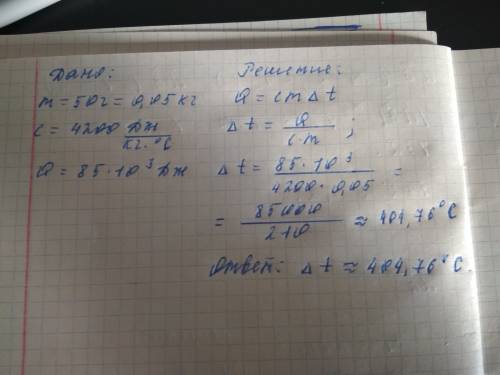 Дано:
m = 50г = 0,05 кг
c = 4200 Дж/кг·°С
Q = 85·10³ Дж
Решение:
Q = cmΔt
Δt = Q/c·m ;
Δt = 85·10³/4200·0,05 =
= 85000/210 ≈ 404,76°С
Ответ: Δt ≈ 404,76°С.